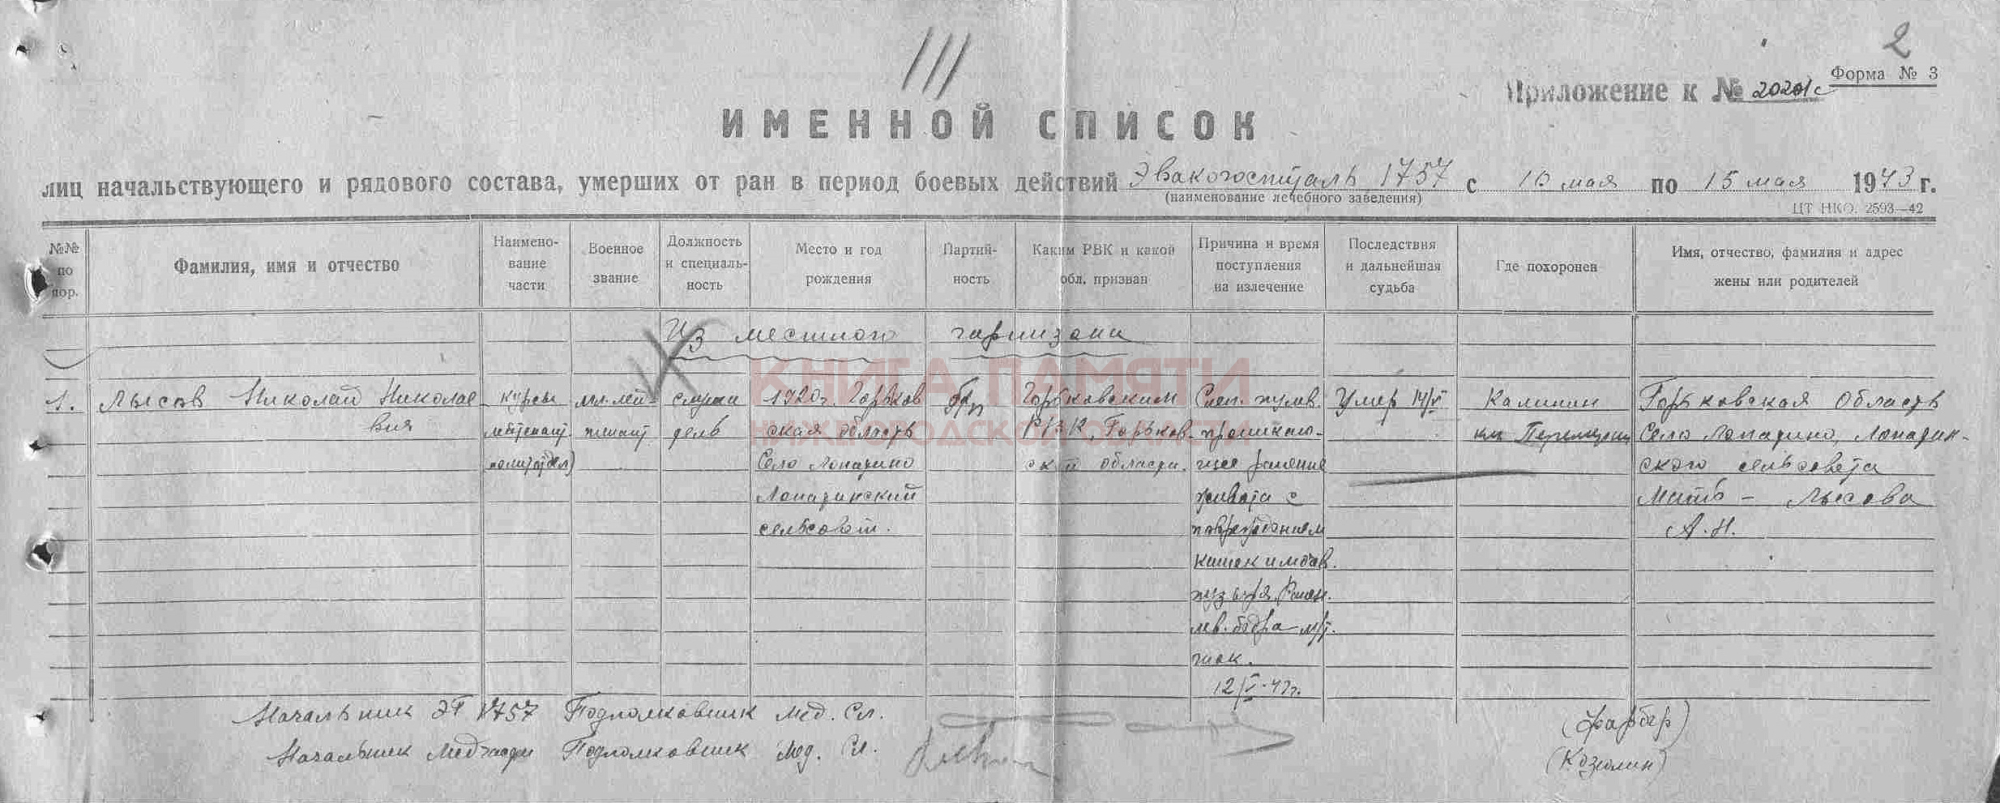 111
2
Форма № 3
Приложение к № 20201с
ИМЕННОЙ СПИСОК
лиц начальствующего и рядового состава, умерших от ран в период боевых действий Эвакогоспиталь 1757 с 10 мая по 15 мая 1943 г.
(наименование лечебного заведения)
ЦТ НКО. 2593—42
№№ по пор.
Фамилия, имя и отчество
Наимено-
вание
части
Военное
звание
Должность
и специаль-
ность
Место и год
рождения
Партий-
ность
Каким РВК и какой
обл. призван
Причина и время
поступления
на излечение
Последствия
и дальнейшая
судьба
Где похоронен
Имя, отчество, фамилия и адрес
жены или родителей
Из местного гарнизона
КНИГА ПАМЯТИ
НИЖЕГОРОДСКОЙ ОБЛАСТИ
1.
Лысов Николай Николае
вич
курсы
мл. лей-
тенант
слуша
тель
1920г. Горьков
ская область
Село Лопатино
Лопатинский
сельсовет.
б/п
Горьковским
РВК, Горьков-
ской области.
Слеп. пулев.
проникаю-
щее ранение
живота с
повреждением
кишек и мочев.
пузыря. Ранен.
лев. бедра м/т.
шок.
12/V-43г.
Умер 14/V
Калинин
кл.
Горьковская область
Село Лопатино, Лопатин-
ского сельсовета
Мать - Лысова
А.Н.
Начальник ЭГ 1757 Подполковник мед. сл.
(Фарбер)
Начальник Медчасти Подполковник мед. сл.
(Козюлин)